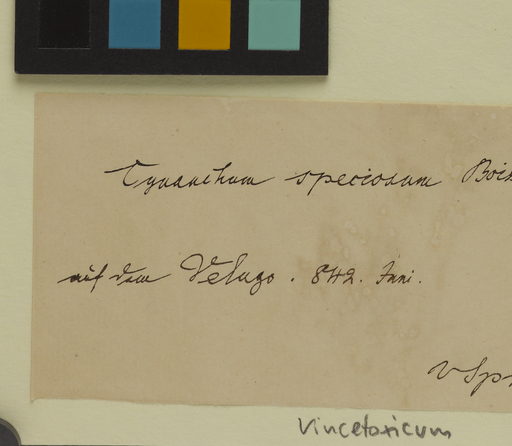 Cynanchum speciosum Bois
auf dem Velugo. 842. Juni.
v Spr
Vincetoxicum